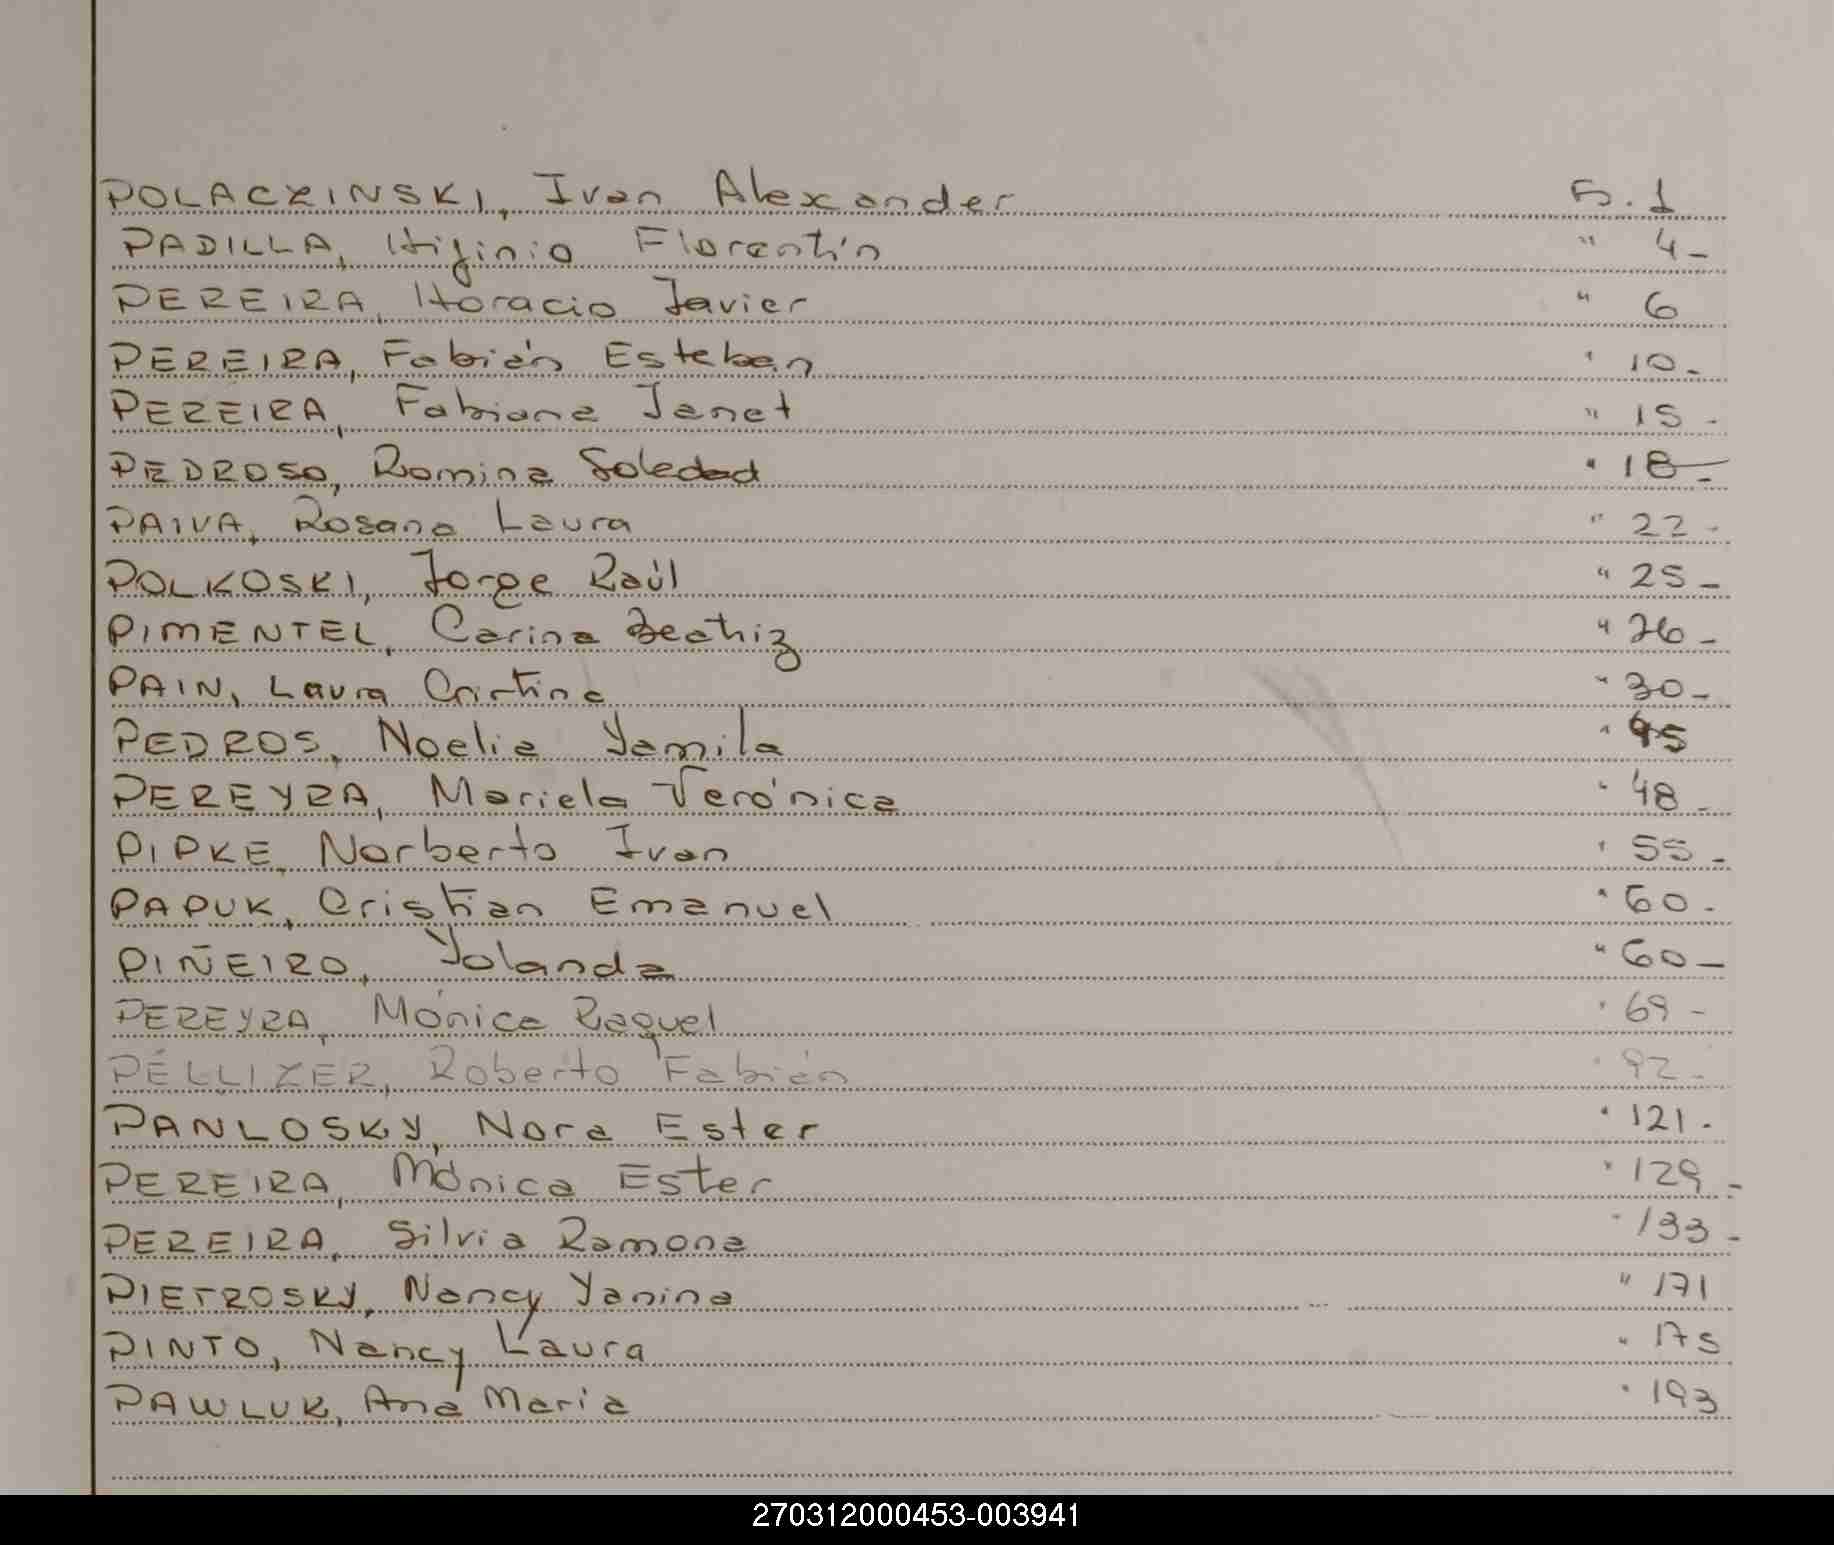 POLACZINSKI, Ivan Alexander Fs. 1
PADILLA, Higinio Florentín " 4-
PEREIRA, Horacio Javier " 6
PEREIRA, Fabián Esteban " 10-
PEREIRA, Fabiana Janet " 15-
PEDROSO, Romina Soledad " 18-
PAIVA, Rosana Laura " 22-
POLKOSKI, Jorge Raúl " 25-
PIMENTEL, Carina Beatriz " 26-
PAIN, Laura Cristina " 30-
PEDROS, Noelia Yamila " 45
PEREYRA, Mariela Verónica " 48-
PIPKE, Norberto Ivan " 55-
PAPUK, Cristian Emanuel " 60-
PIÑEIRO, Yolanda " 60-
PEREYRA, Mónica Raquel " 69-
PÉLLIZER, Roberto Fabián " 92-
PANLOSKY, Nora Ester " 121-
PEREIRA, Mónica Ester " 129-
PEREIRA, Silvia Ramona " 133-
PIETROSKY, Nancy Yanina " 171
PINTO, Nancy Laura " 175
PAWLUK, Ana Maria " 193
270312000453-003941